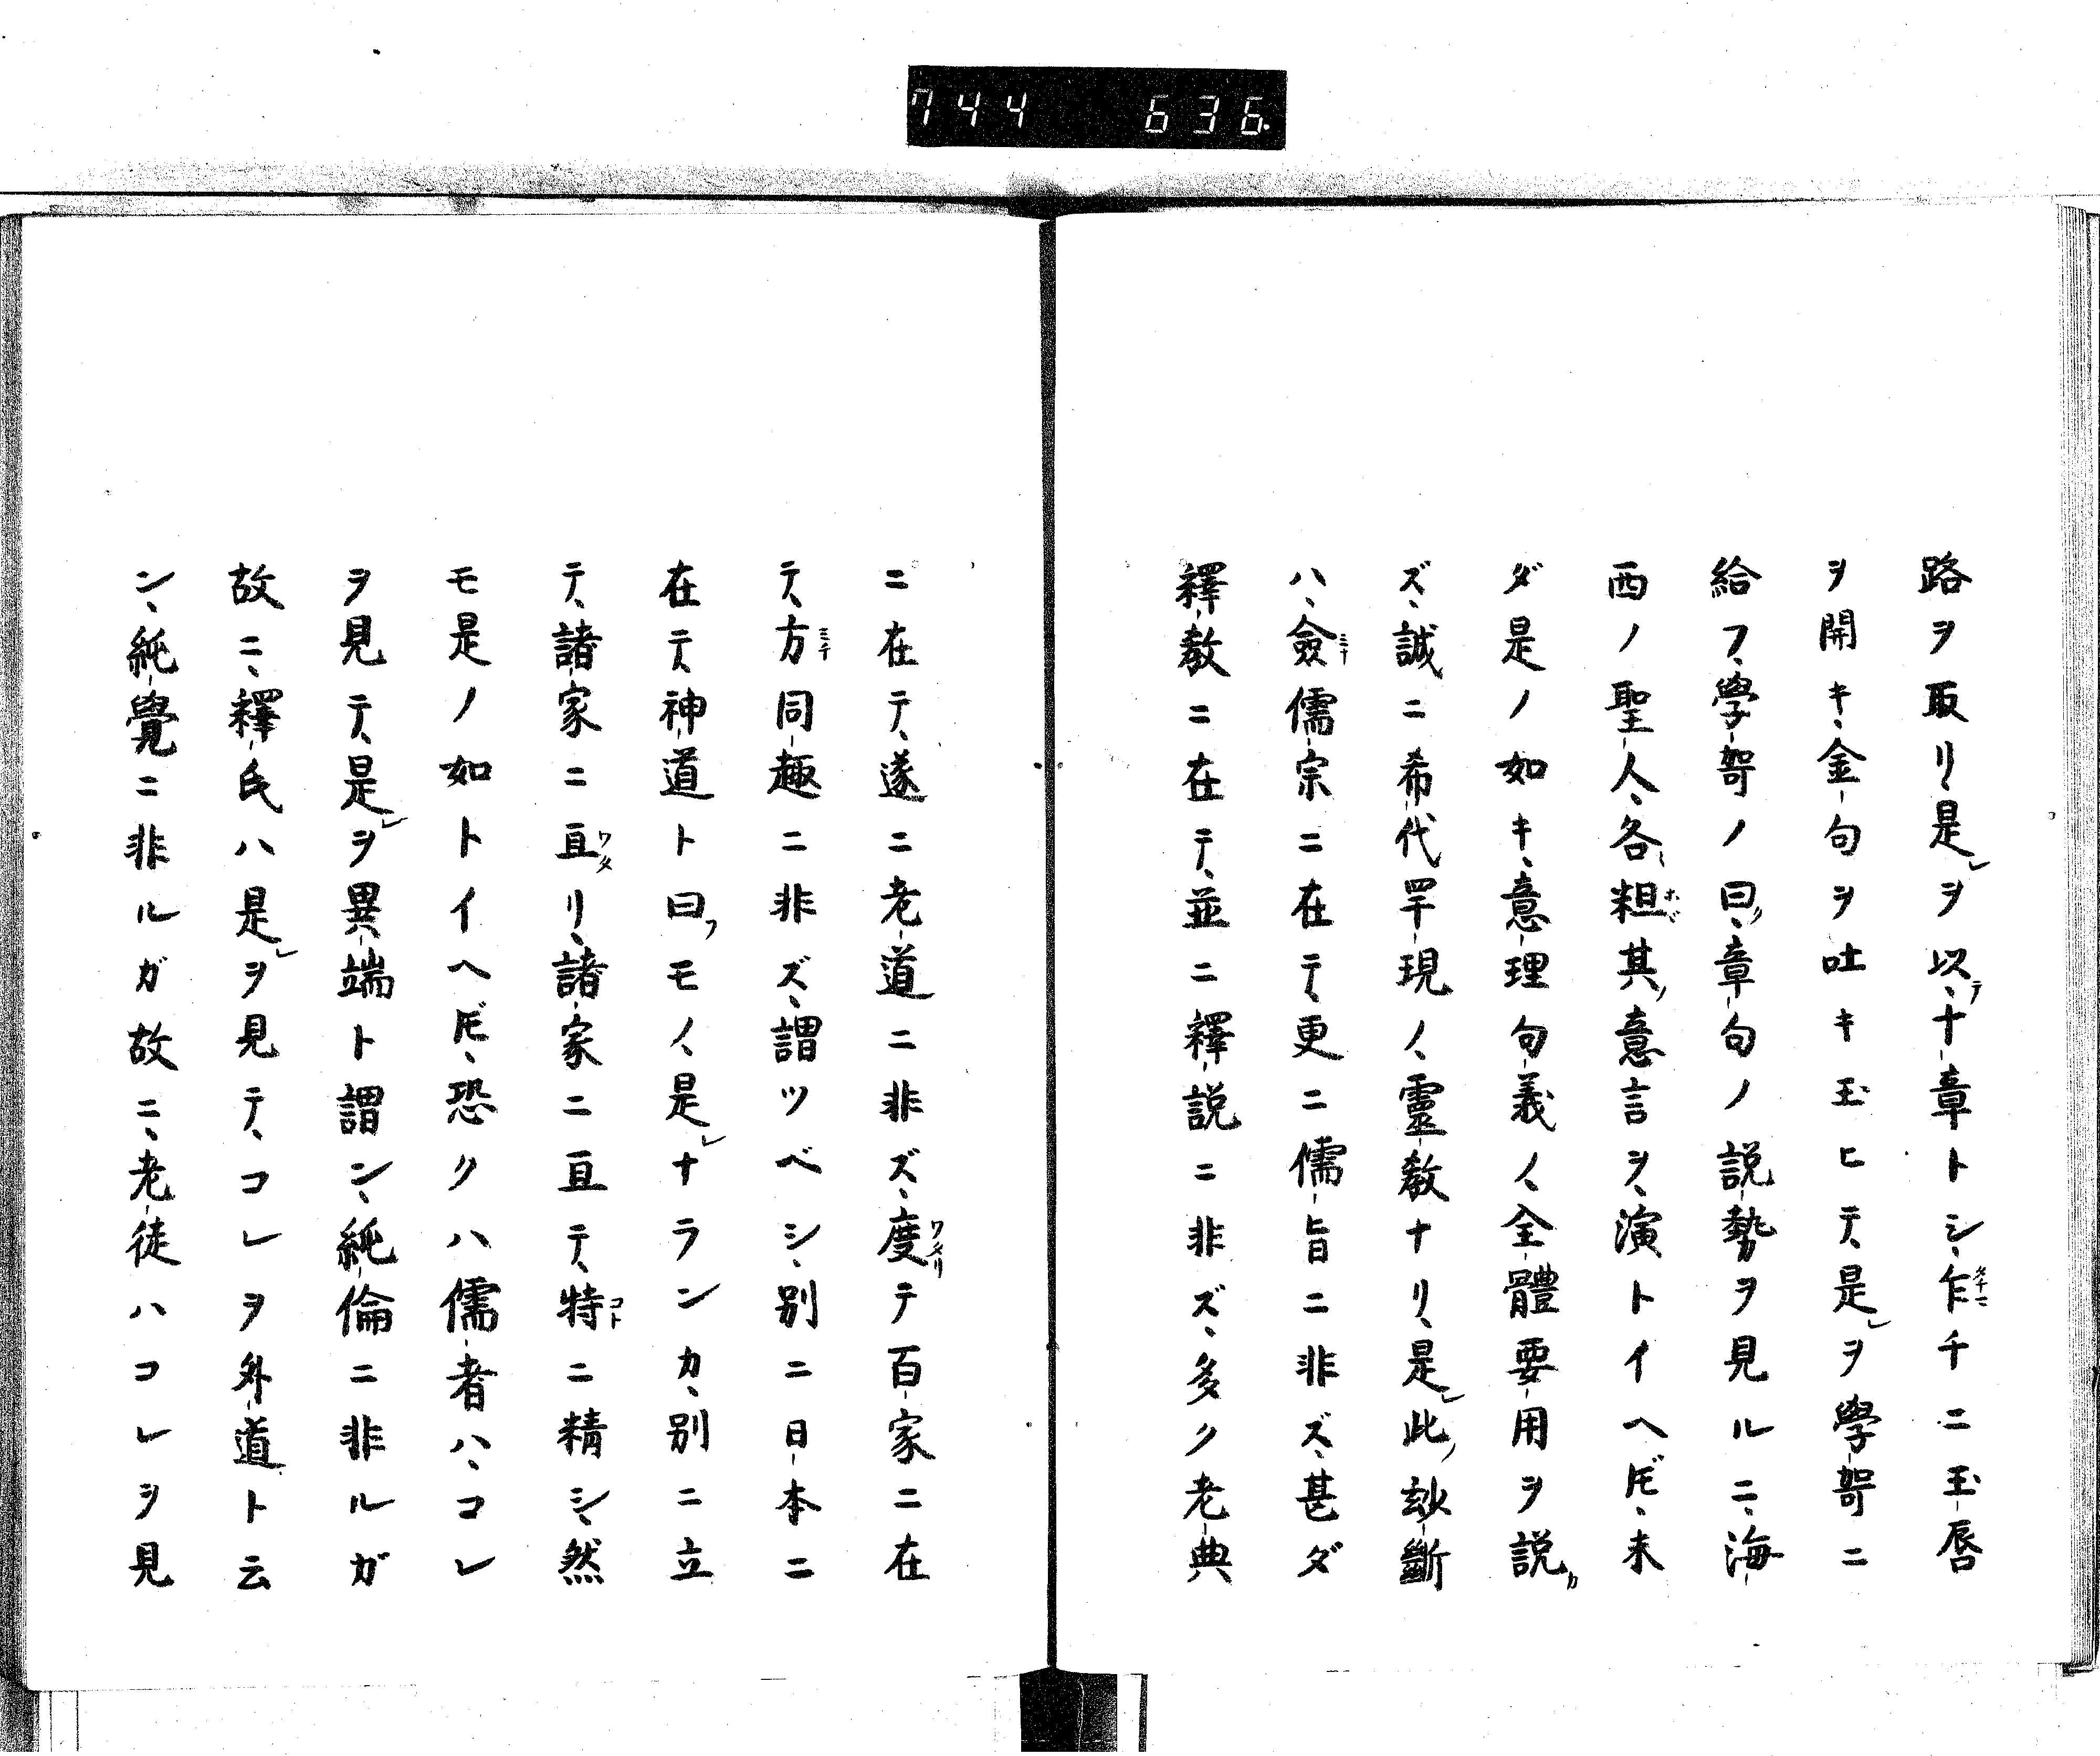 744 636.
路ヲ取リ、是レヲ以テ、十章トシ、乍チニ玉唇
ヲ開キ、金句ヲ吐キ玉ヒテ、是レヲ學哿ニ
給フ、學哿ノ曰ク、章句ノ説勢ヲ見ルニ、海
西ノ聖人、各〻粗其ノ意言ヲ、演トイヘ𪜈、未
ダ是ノ如キ、意理句義ノ、全體要用ヲ説カ
ズ、誠ニ希代罕現ノ、靈教ナリ、是レ此ノ玅斷
ハ、僉儒宗ニ在テ、更ニ儒旨ニ非ズ、甚ダ
釋教ニ在テ、並ニ釋説ニ非ズ、多ク老典
ニ在テ、遂ニ老道ニ非ズ、度テ百家ニ在
テ、方同趣ニ非ズ、謂ツベシ、別ニ日本ニ
在テ、神道ト曰フモノ、是レナランカ、別ニ立
テ、諸家ニ亘リ、諸家ニ亘テ、特ニ精シ、然
モ是ノ如トイヘ𪜈、恐クハ儒者ハ、コレ
ヲ見テ、是レヲ異端ト謂ン、純倫ニ非ルガ
故ニ、釋氏ハ是レヲ見テ、コレヲ外道ト云
ン、純覺ニ非ルガ故ニ、老徒ハコレヲ見